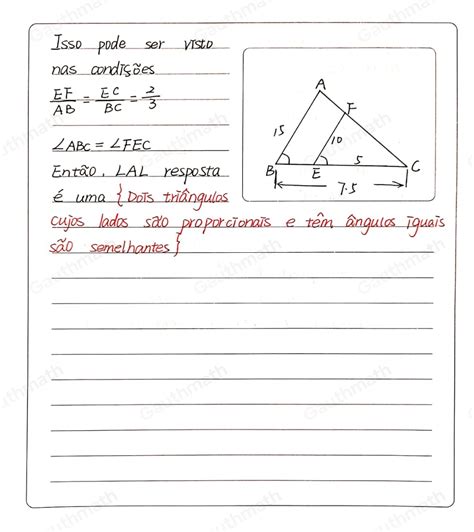 Isso pode ser visto
nas condições
EF/AB = EC/BC = 2/3
∠ABC = ∠FEC
Então, LAL resposta
é uma {Dois triângulos
cujos lados são proporcionais e têm ângulos iguais
são semelhantes}
A
F
15
10
5
B
E
C
7.5
Gauthmath